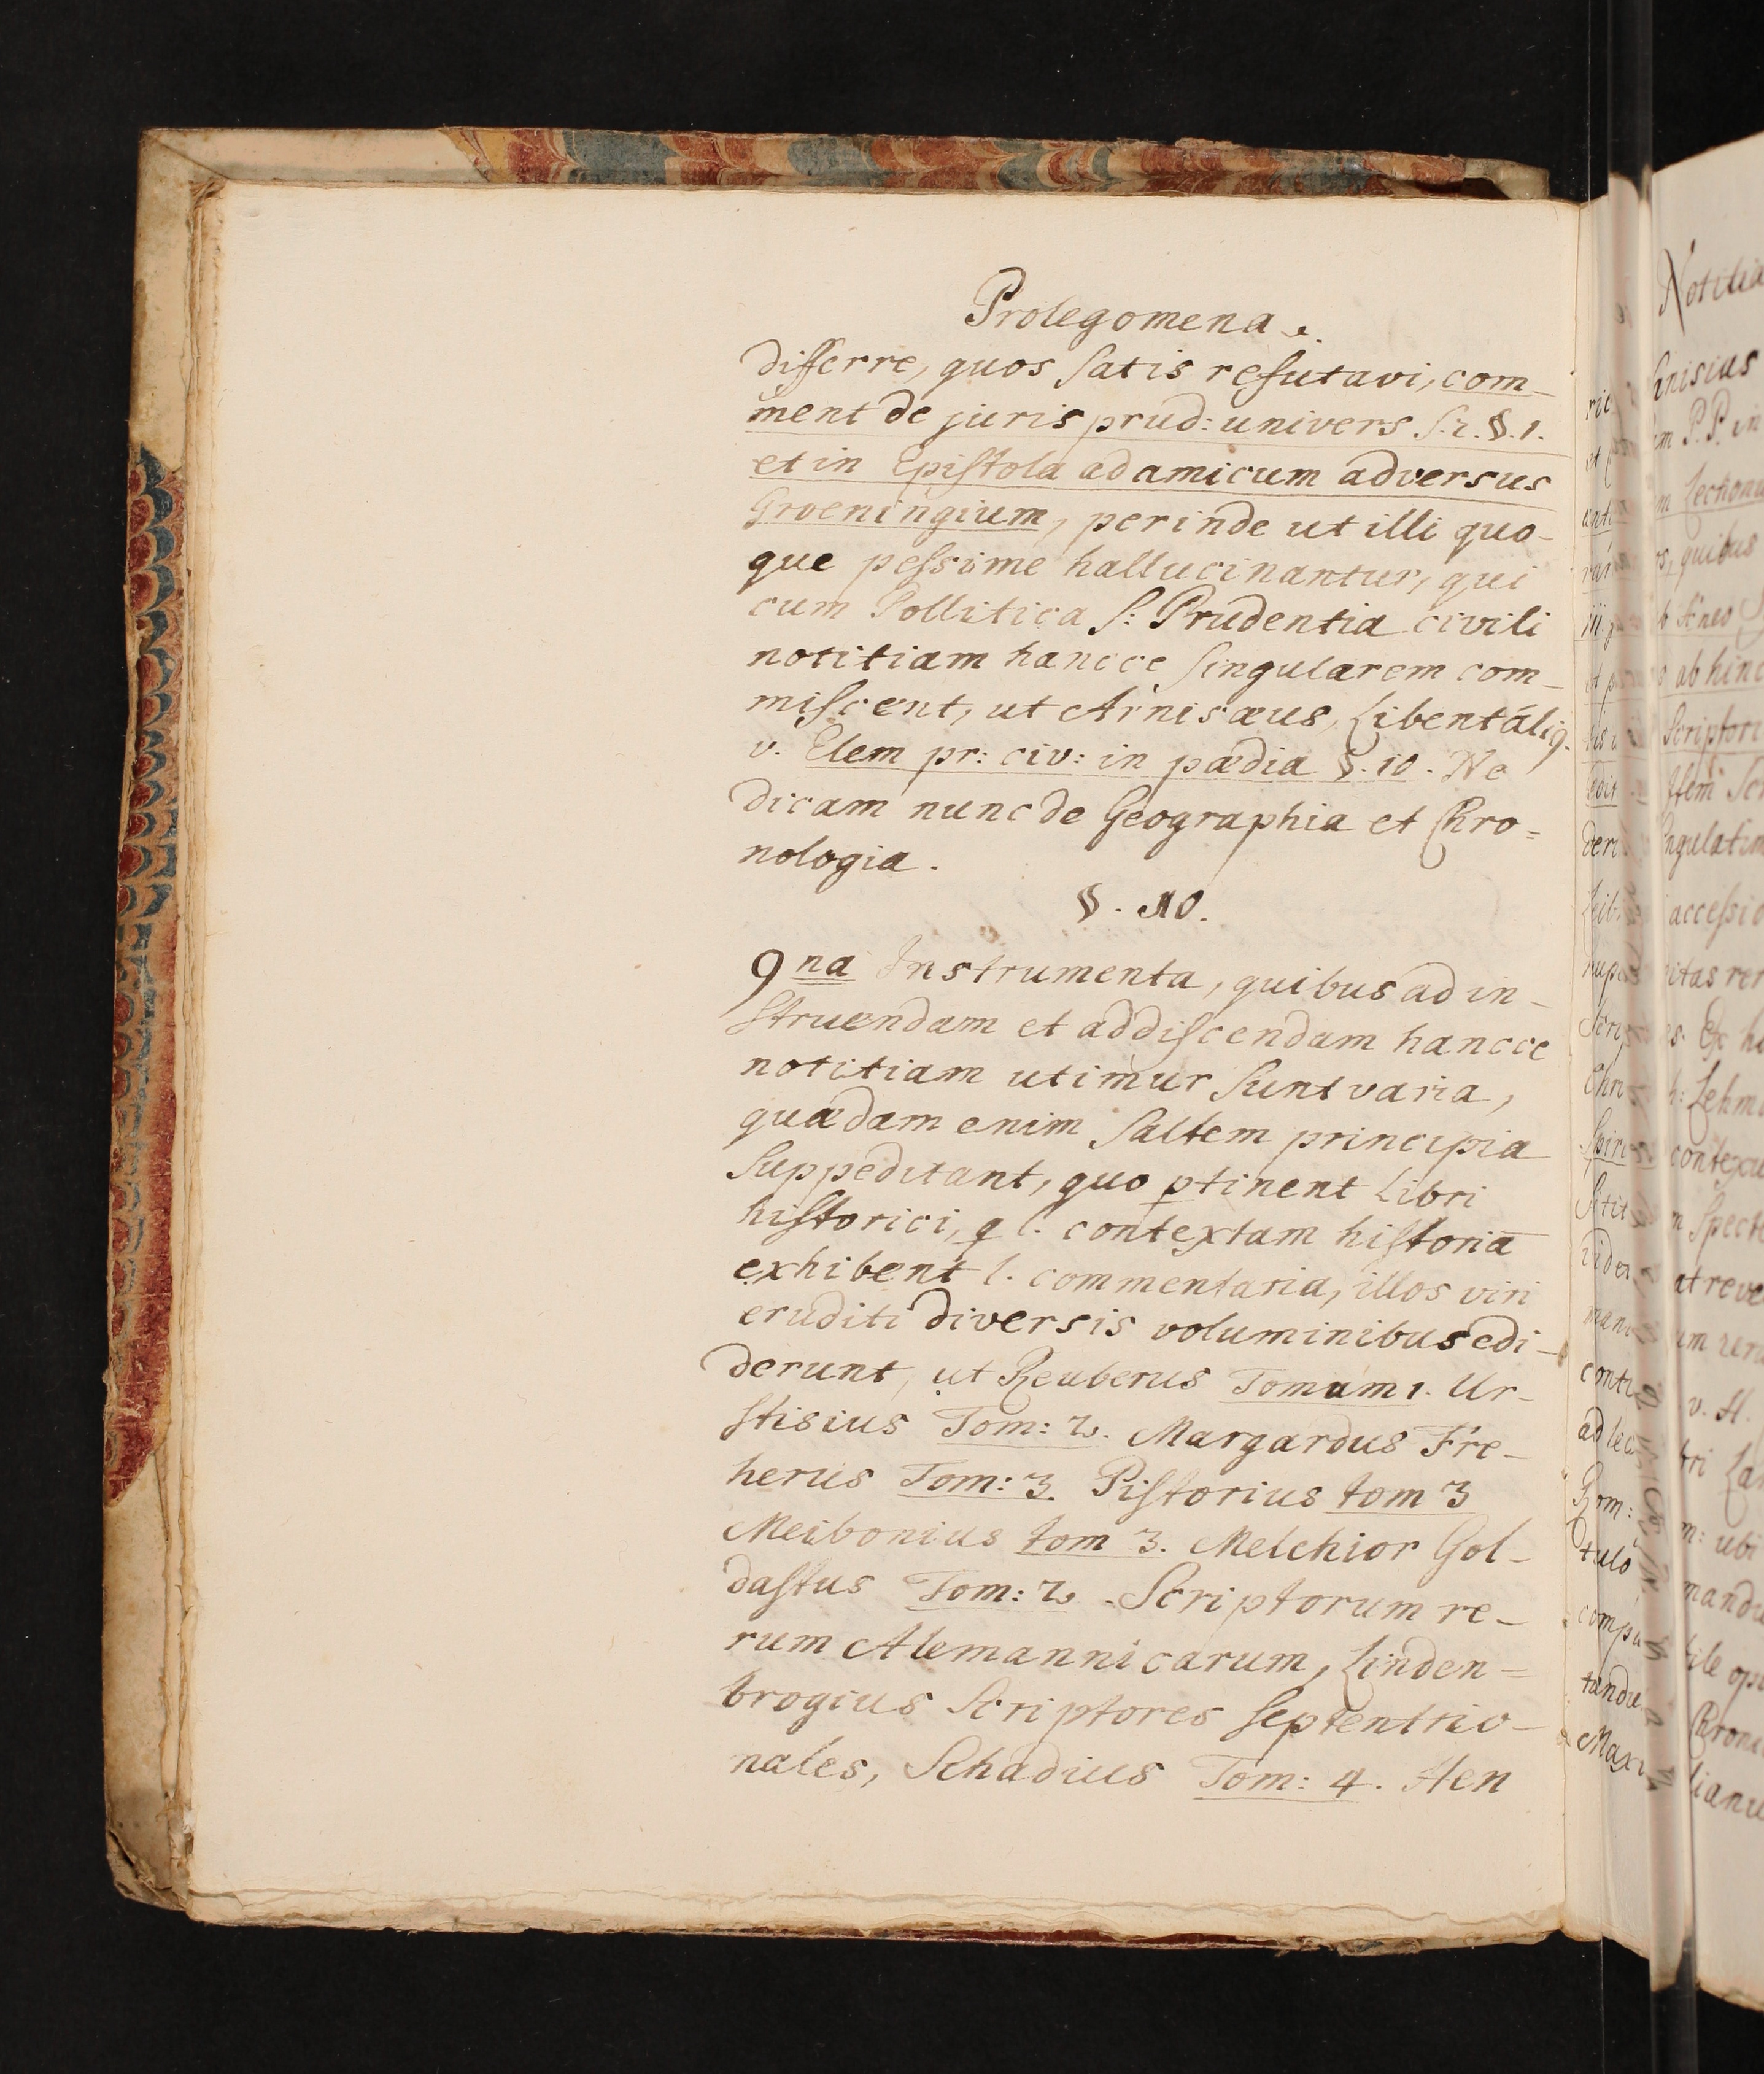 Prolegomena.
differre, quos satis refutavi, com-
ment de juris prud: univers S. 2. §. 1.
et in Epistola ad amicum adversus
Groeningium, perinde ut illi quo-
que pessime hallucinantur, qui
cum Pollitica S: Prudentia civili
notitiam hancce singularem com-
miscent, ut Arnisæus, Libentáliq.
v. Elem pr: civ: in pædia §. 10. Ne
dicam nunc de Geographia et Chro=
nologia.
§. 10.
9na Instrumenta, quibus ad in-
struendam et addiscendam hancce
notitiam utimur sunt varia,
quædam enim saltem principia
suppeditant, quo ptinent Libri
historici, q l. contextam historiā
exhibent l. commentaria, illos viri
eruditi diversis voluminibus edi-
derunt, ut Reuberus Tomum 1. Ur-
stisius Tom: 2. Margardus Fre-
herus Tom: 3. Pistorius tom 3
Meibonius tom 3. Melchior Gol-
dastus Tom: 2. Scriptorum re-
rum Alemannicarum, Linden=
brogius Scriptores septentrio-
nales, Schadius Tom: 4. Hen